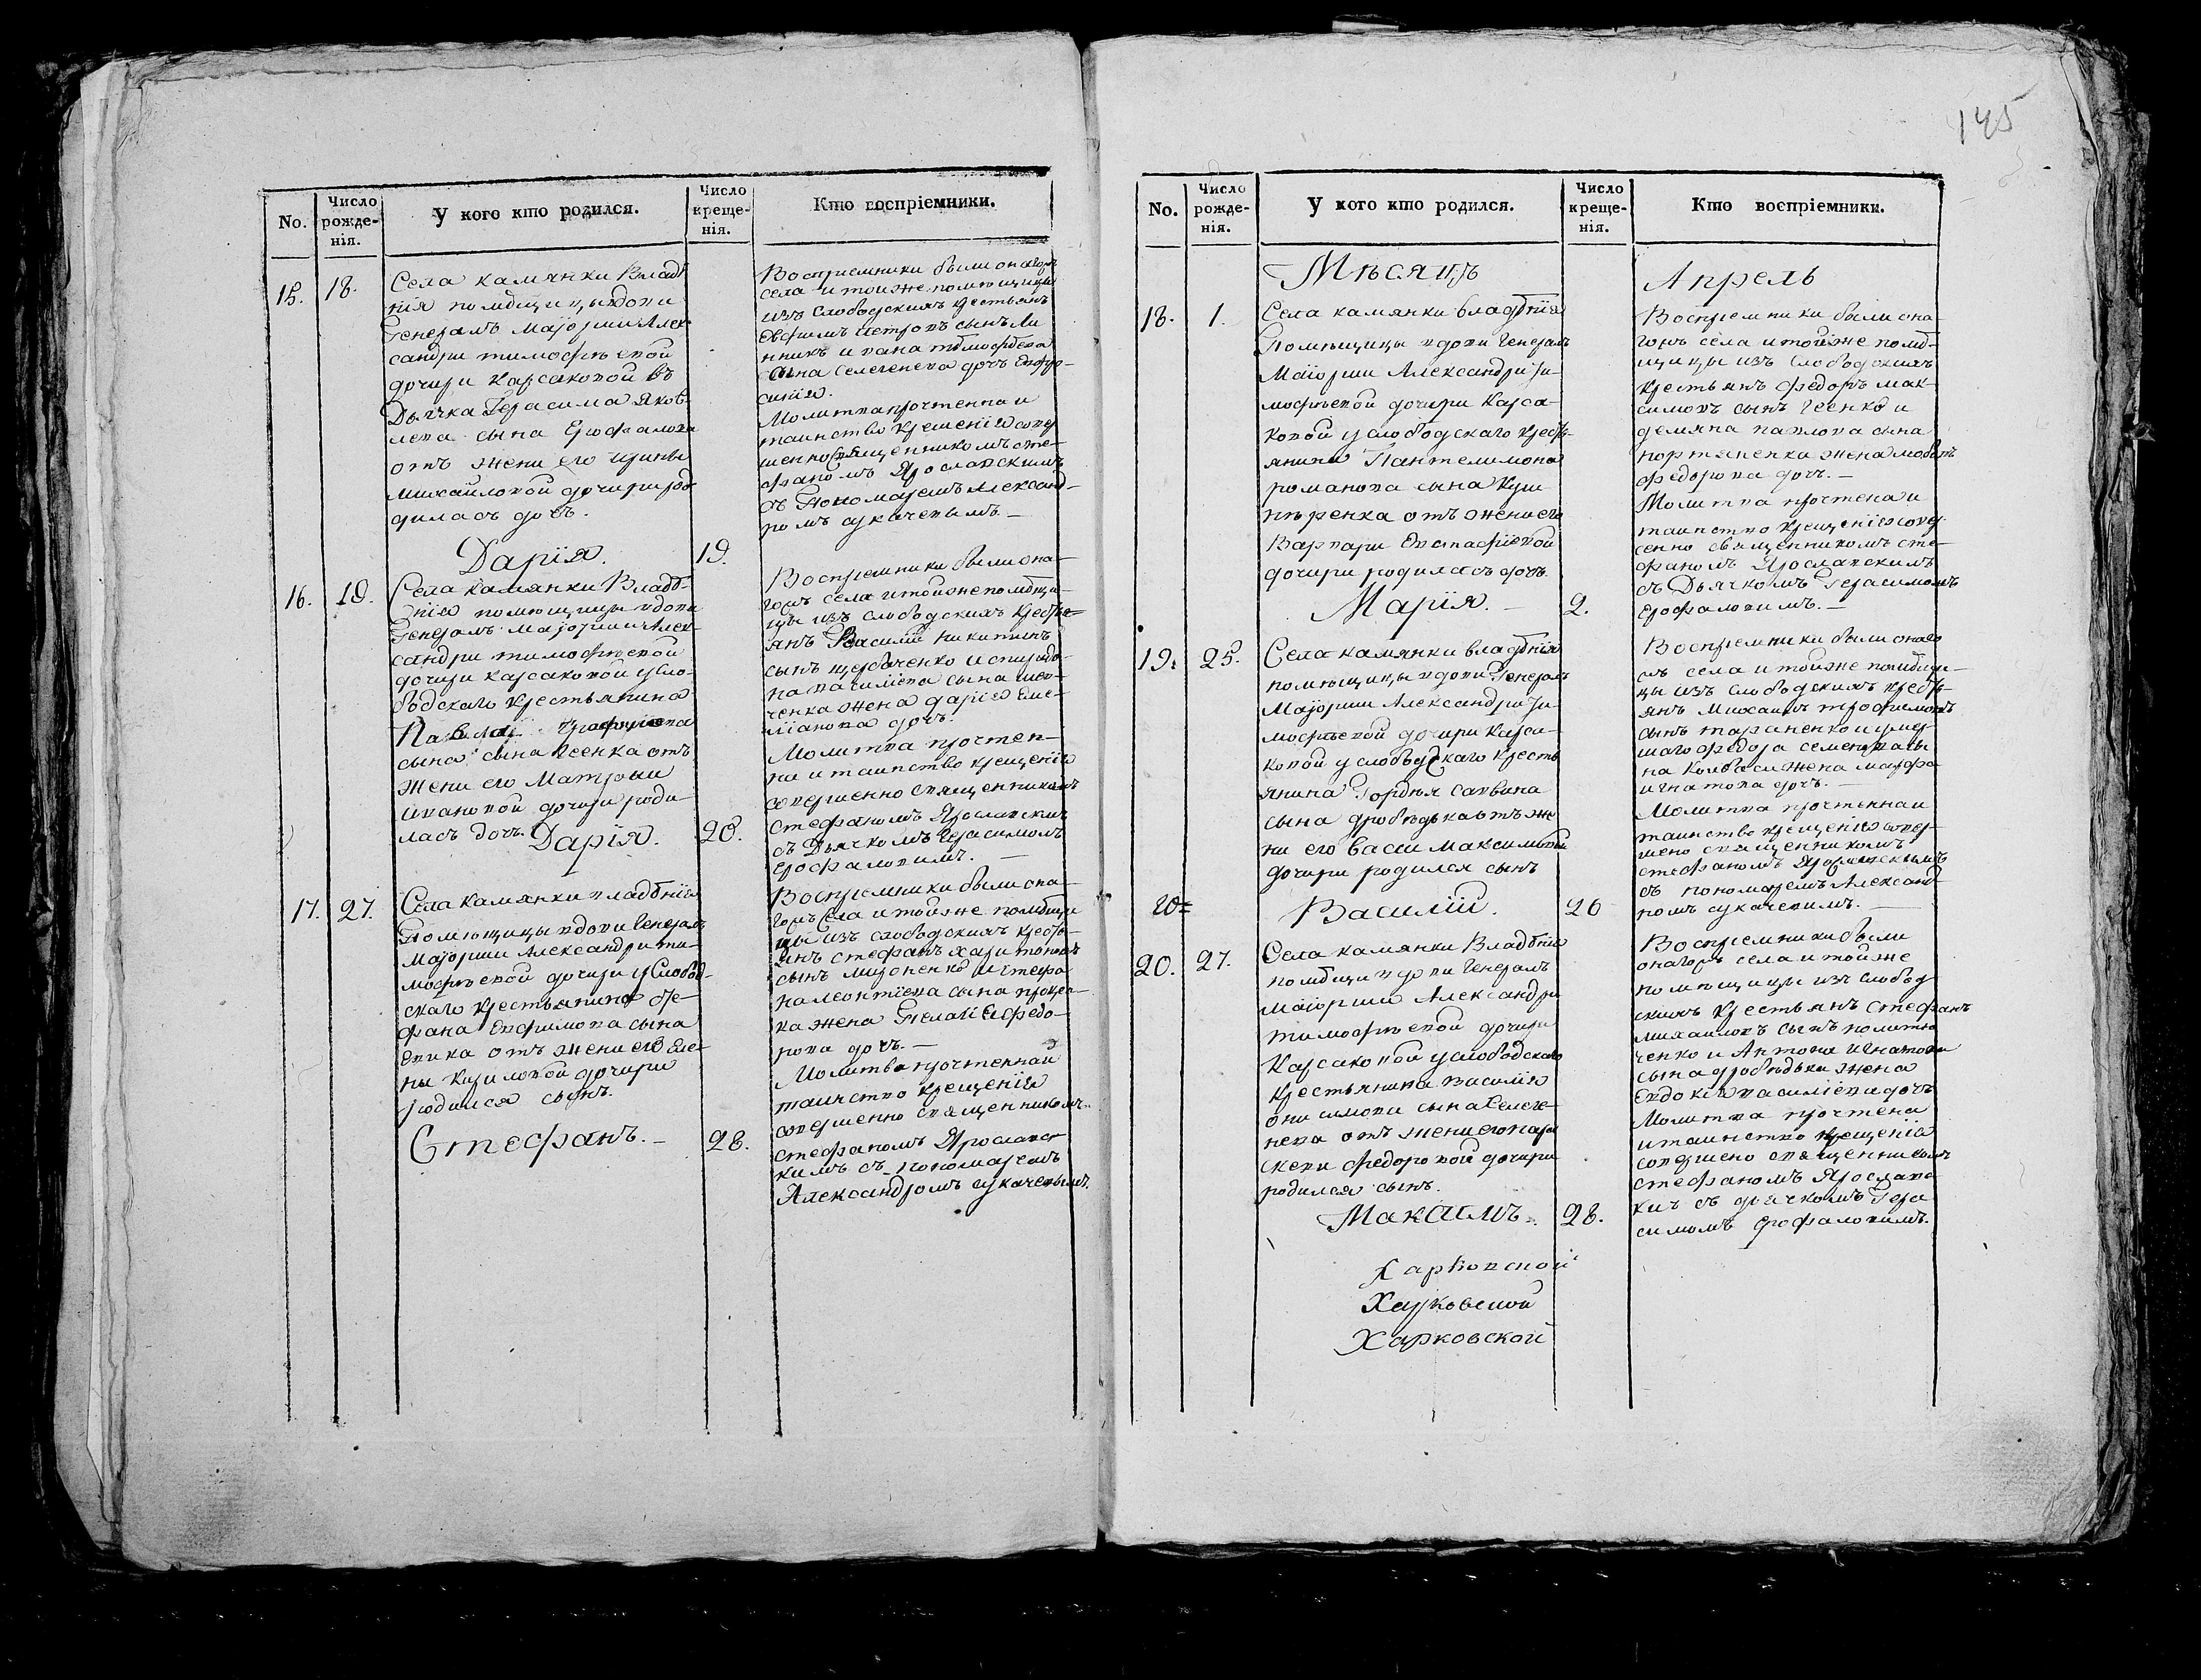 145
No.
Число рожде-нія.
У кого кто родился.
Число креще-нія.
Кто воспріемники.
15. 18.
Села камянки Владѣ
нія помѣщицы вдови
Генералъ Маіорши Алек
сандри тимофѣевой
дочири Карсаковой въ
Дьячка Герасима Яков
лева сына Ерофалова
отъ жени его ирины
михайловой дочири ро
дилась дочъ.
Дарія. 19.
Восприемники были онагожъ
села и тойже помѣщицы
изъ слободскихъ крестьянъ
Ефимъ петровъ сынъ Ли
нникъ и ивана тимофѣева
сына селегенева дочъ Евфро-
синия.
Молитва прочтенна и
таинство крещенія совер
шенно священникомъ сте-
фаномъ Ярославскимъ
съ Пономаремъ Александ-
ромъ сукачевымъ.
16. 19.
Села Камянки Владѣ-
нія помѣщицы вдови
Генералъ Маіорши Алек-
сандри тимофѣевой
дочири карсаковой у сло-
бодскаго крестьянина
Павла
сына Гсенка отъ
жени его Матроны
ивановой дочири роди-
лась дочъ. Дарія. 20.
Восприемники были она-
гожъ села и тойже помѣщи-
цы изъ слободскихъ крестья-
янъ Василий никитинъ
сынъ щербаченко и спиридо-
на василіева сына шев-
ченка жена дарія Еме-
ліанова дочъ.
Молитва прочтен-
на и таинство крещенія
совершенно священникомъ
Стефаномъ Ярославским
съ Дьячкомъ Герасимомъ
Ерофаловимъ.
17. 27.
Села Камянки владѣнія
Помѣщицы вдови Генералъ
Маіорши Александри ти-
мофѣевой дочири у Слобод-
скаго крестьянина сте-
фана Евфимова сына
отъ жени его Еле-
ны Кириловой дочири
родился сынъ.
Стефанъ. 28.
Восприемники были она-
гожъ Села и тойже помѣщи
цы изъ слободскихъ крестья-
янъ стефанъ харитоновъ
сынъ мироненко и стефа
на леонтіева сына
ка жена Пелагія федо-
рова дочъ.
Молитва прочтенна и
таинство крещенія
совершенно священникомъ
стефаномъ Ярославс
кимъ съ пономаремъ
Александромъ сукачевымъ.
No.
Число рожде-нія.
У кого кто родился.
Число креще-нія.
Кто воспріемники.
Мѣсяцъ Апрель
18. 1.
Села камянки владѣнія
Помѣщицы вдови Генералъ
Маіорши Александри ти-
мофѣевой дочири Карса-
ковой у слободскаго кресть-
янина Пантелимона
романова сына Куш-
нѣренка отъ жени его
Варвари Евстафіевой
дочири родилась дочъ.
Марія. 2.
Восприемники были она-
гожъ села и тойже помѣ-
щицы изъ слободскихъ
крестьянъ федоръ мак-
симовъ сынъ Гсенко и
демяна павлова сына
портяненки жена
федорова дочъ.
Молитва прочтена и
таинство крещенія совер
сенно священникомъ сте-
фаномъ Ярославскимъ
съ Дьячкомъ Герасимомъ
Ерофаловимъ.
19. 25.
Села камянки владѣнія
помѣщицы вдови Генералъ
Маіорши Александри ти-
мофѣевой дочири Карса-
ковой у слободскаго кресть
янина Гордѣя саввина
сына дробядька отъ же
ни его Васси Максимовой
дочири родился сынъ
20
Василій. 26
Восприемники были онаго
жъ села и тойже помѣщи-
цы изъ слободскихъ кресть-
янъ Михаилъ трофимовъ
сынъ тараненко и умер-
шаго федора семенова сы
на Колбаси жена марфа
игнатова дочъ.
Молитва прочтенна и
таинство крещенія совер-
шено священникомъ
стефаномъ Ярославскимъ
съ пономаремъ Александ-
ромъ сукачевимъ.
20. 27.
Села камянки Владѣнія
помѣщи вдови Генералъ
Маіорши Александри
тимофѣевой дочири
Карсаковой у слободскаго
крестьянина василія
онисимова сына Селеге-
нева отъ жени его пара
скеви федоровой дочири
родился сынъ.
Максимъ. 28.
Восприемники были
онагожъ села и тойже
помѣщицы изъ слобод
скихъ крестьянъ стефанъ
михаиловъ сынъ
ченко и Антона игнатова
сына дробядьки жена
Евдокія василіева дочъ
Молитва прочтена
и таинство крещенія
совершено священникомъ
стефаномъ Ярославс
ки съ дьячкомъ Гера
симомъ Ерофаловимъ.
Харковской
Харковской
Харковской